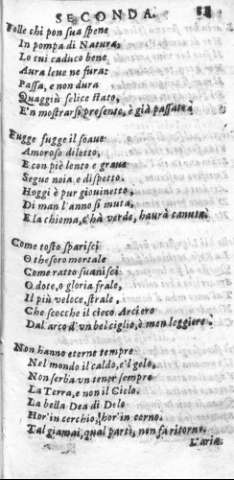 SECONDA.
Folle chi pon sua spene
In pompa di Natura,
Lo cui caduco bene
Aura leue ne fura:
Passa, e non dura
Quaggiù felice stato,
E'n mostrarsi presente, è già passato.
Fugge fugge il soaue
Amoroso diletto,
E con piè lento e graue
Segue noia e dispetto.
Hoggi è pur giouinetto,
Di man l'anno si muta,
E la chioma, c'hà verde, haurà canuta.
Come tosto sparisci
O thesoro mortale
Come ratto suanisci
O dote, o gloria frale,
Il più veloce strale,
Che scocche il cieco Arciero
Dal arco d'un bel ciglio, è men leggiero.
Non hanno eterne tempre
Nel mondo il caldo, e'l gelo,
Non serba un tenor sempre
La Terra, e non il Cielo.
La bella Dea di Delo
Hor'in cerchio, hor'in corno.
Tal giamai, qual parti, non fa ritorno.
L'aria